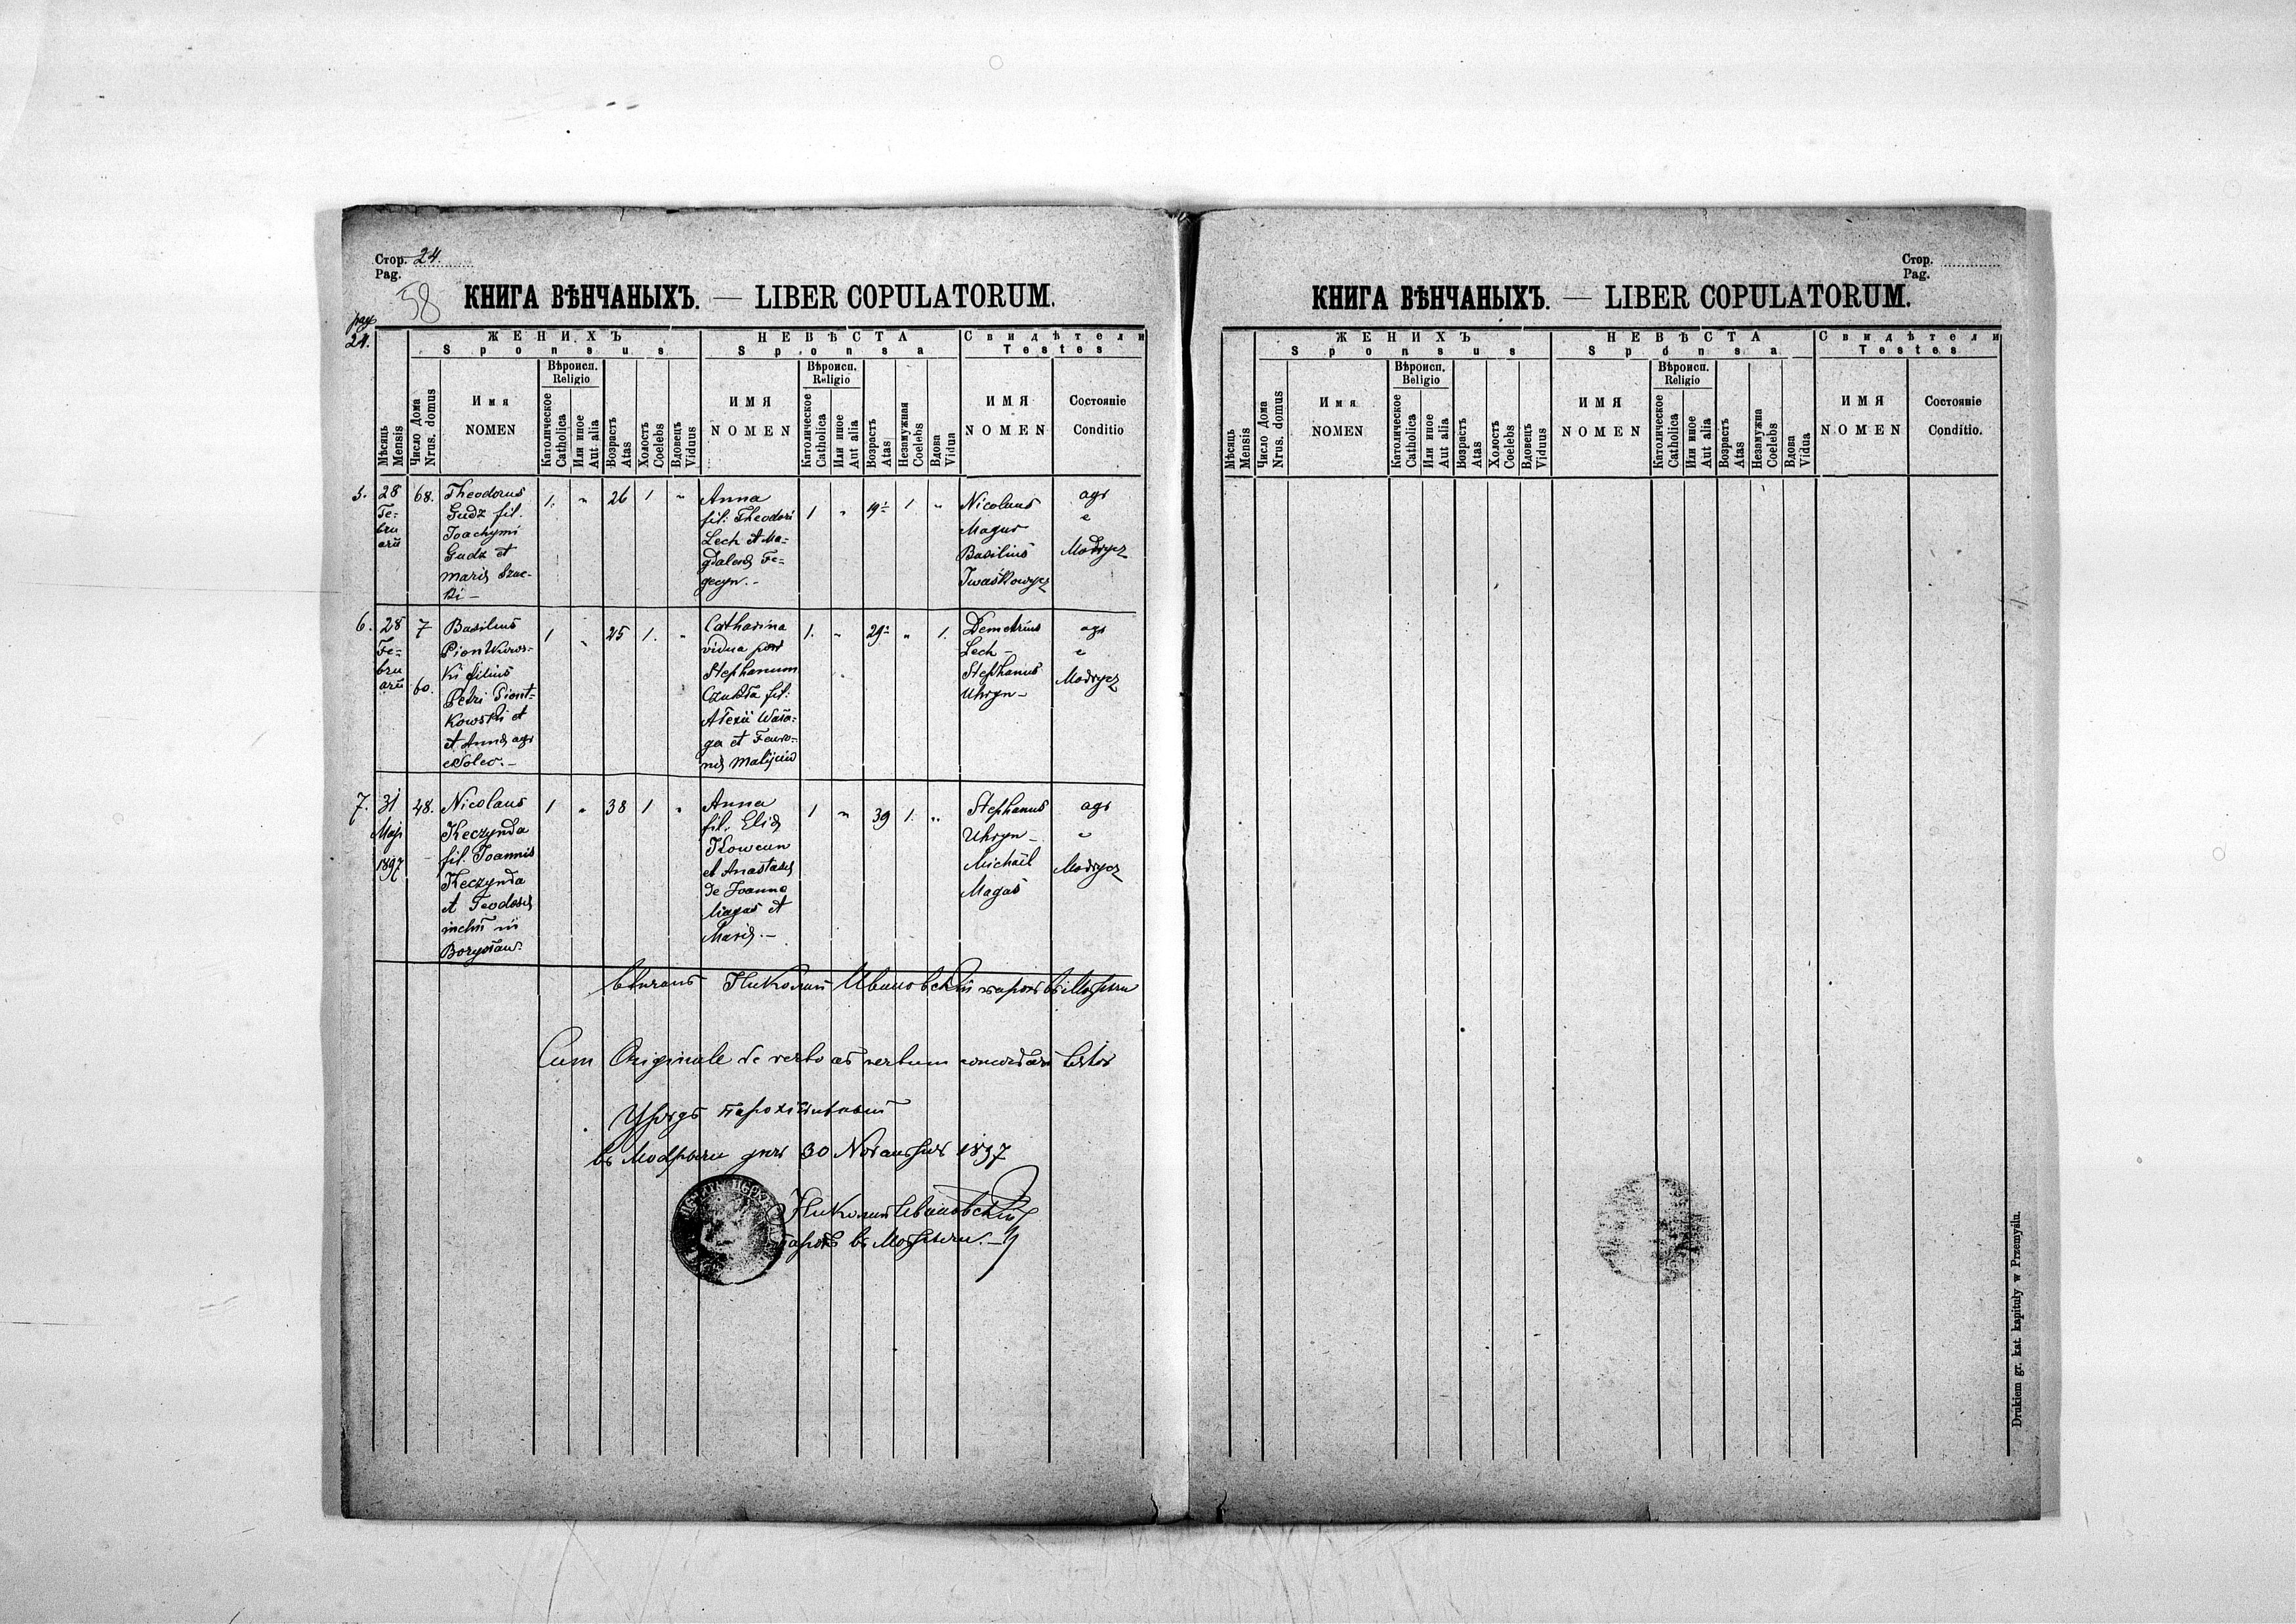 Стор. 24.
Pag.
58
КНИГА ВѢНЧАНЫХЪ. — LIBER COPULATORUM.
pag
24.
ЖЕНИХЪ
Sponsus
НЕВѢСТА
Sponsa
Свидѣтели
Testes
Мѣсяць
Mensis
Число Дома
Nrus. domus
Имя
NOMEN
Вѣроисп.
Religio
Католическое
Catholica
Или иное
Aut alia
Возрастъ
Atas
Холостъ
Coelebs
Вдовецъ
Viduus
ИМЯ
NOMEN
Вѣроисп.
Religio
Католическое
Catholica
Или иное
Aut alia
Возрастъ
Atas
Незамужная
Coelebs
Вдова
Vidua
ИМЯ
NOMEN
Состояніе
Conditio
5.
28
Fe-
bru
arii
68.
Theodorus
Gudz fil.
Joachymi
Gudz et
1.
"
26
1
"
Anna
fil: Theodori
Lech et Ma-
1
"
19
1
"
Nicolaus
Magur
Basilius
Iwaśkowycz
agr
e
Modrycz
6.
28
Fe-
bru
arii
7
60.
Basilius
Piontkows-
ki filius
Petri Piont-
kowski et
et Anna agr
1
"
25
1.
"
Catharina
vidua post
Stephanum
1.
"
29
"
1.
Demetrius
Lech -
Stephanus
Uhryn -
agr
e
Modrycz
7.
31
Maji
1897
48.
Nicolaus
Keczynda
fil. Joannis
Keczynda
et Teodosiae
Borysław.
1
"
38
1
"
Anna
fil. Eliae
et Anastasiae
de Joanne
Magas et
Maria. -
1
"
39
1.
"
Stephanus
Uhryn -
Michaël
Magas
agr
e
Modrycz
Вѣнчалъ Николай Ивановскій парохъ въ Модрычи
Cum Originale de verbo ad verbum concordare testor
Урядъ парохіяльный
въ Модрычи дня 30 Novамбрія 1897
Николай Ивановскій
парохъ въ Модрычи. -
Стор.
Pag.
КНИГА ВѢНЧАНЫХЪ. — LIBER COPULATORUM.
ЖЕНИХЪ
Sponsus
НЕВѢСТА
Sponsa
Свидѣтели
Testes
Мѣсяць
Mensis
Число Дома
Nrus. domus
Имя
NOMEN
Вѣроисп.
Beligio
Католическое
Catholica
Или иное
Aut alia
Возрастъ
Atas
Холостъ
Coelebs
Вдовецъ
Viduus
ИМЯ
NOMEN
Вѣроисп.
Religio
Католическое
Catholica
Или иное
Aut alia
Возрастъ
Atas
Незамужна
Coelebs
Вдова
Vidua
ИМЯ
NOMEN
Состояніе
Conditio.
Drukiem gr. kat. kapituły w Przemyślu.